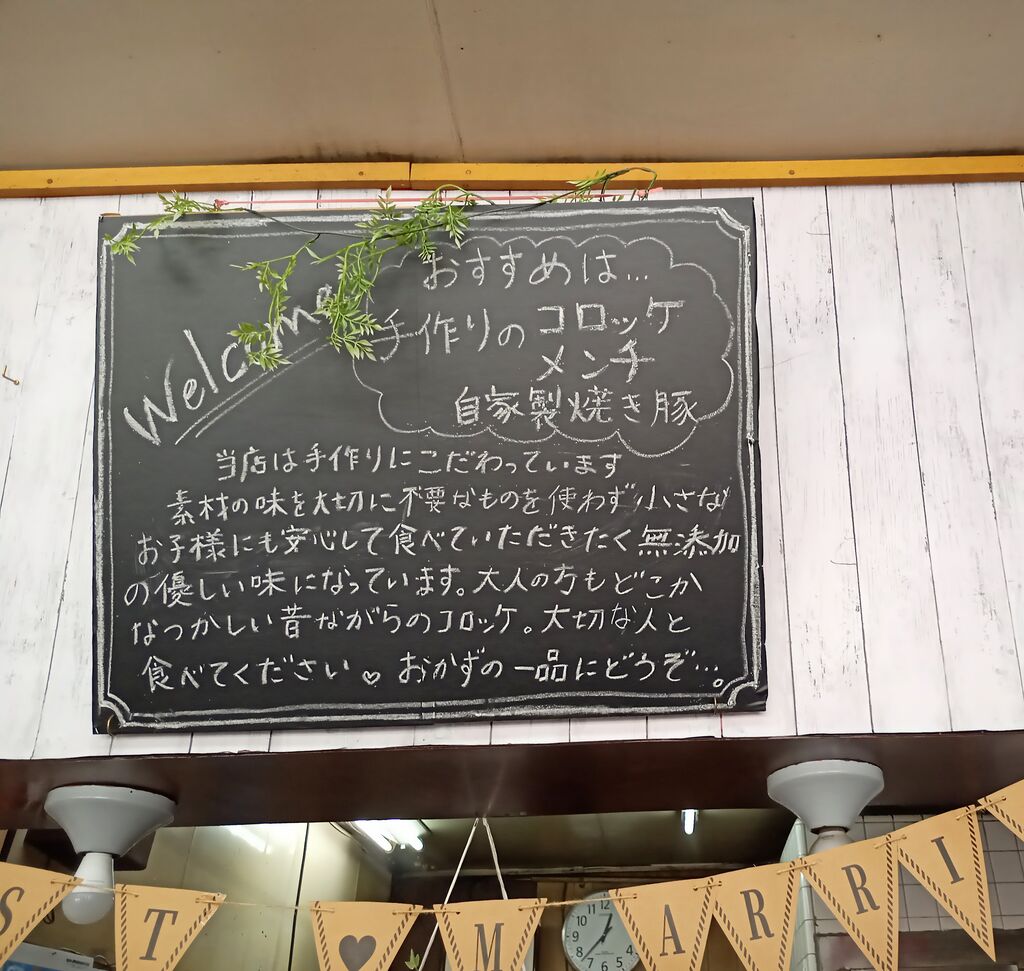 Welcome
おすすめは...
手作りの コロッケ
メンチ
自家製焼き豚
当店は手作りにこだわっています
素材の味を大切に不要なものを使わず小さな
お子様にも安心して食べていただきたく無添加
の優しい味になっています。大人の方もどこか
なつかしい昔ながらのコロッケ。大切な人と
食べてください♡おかずの一品にどうぞ...。
S T ♥ M A R R I
10 11 12 1 2 4 5 6 7 8 9